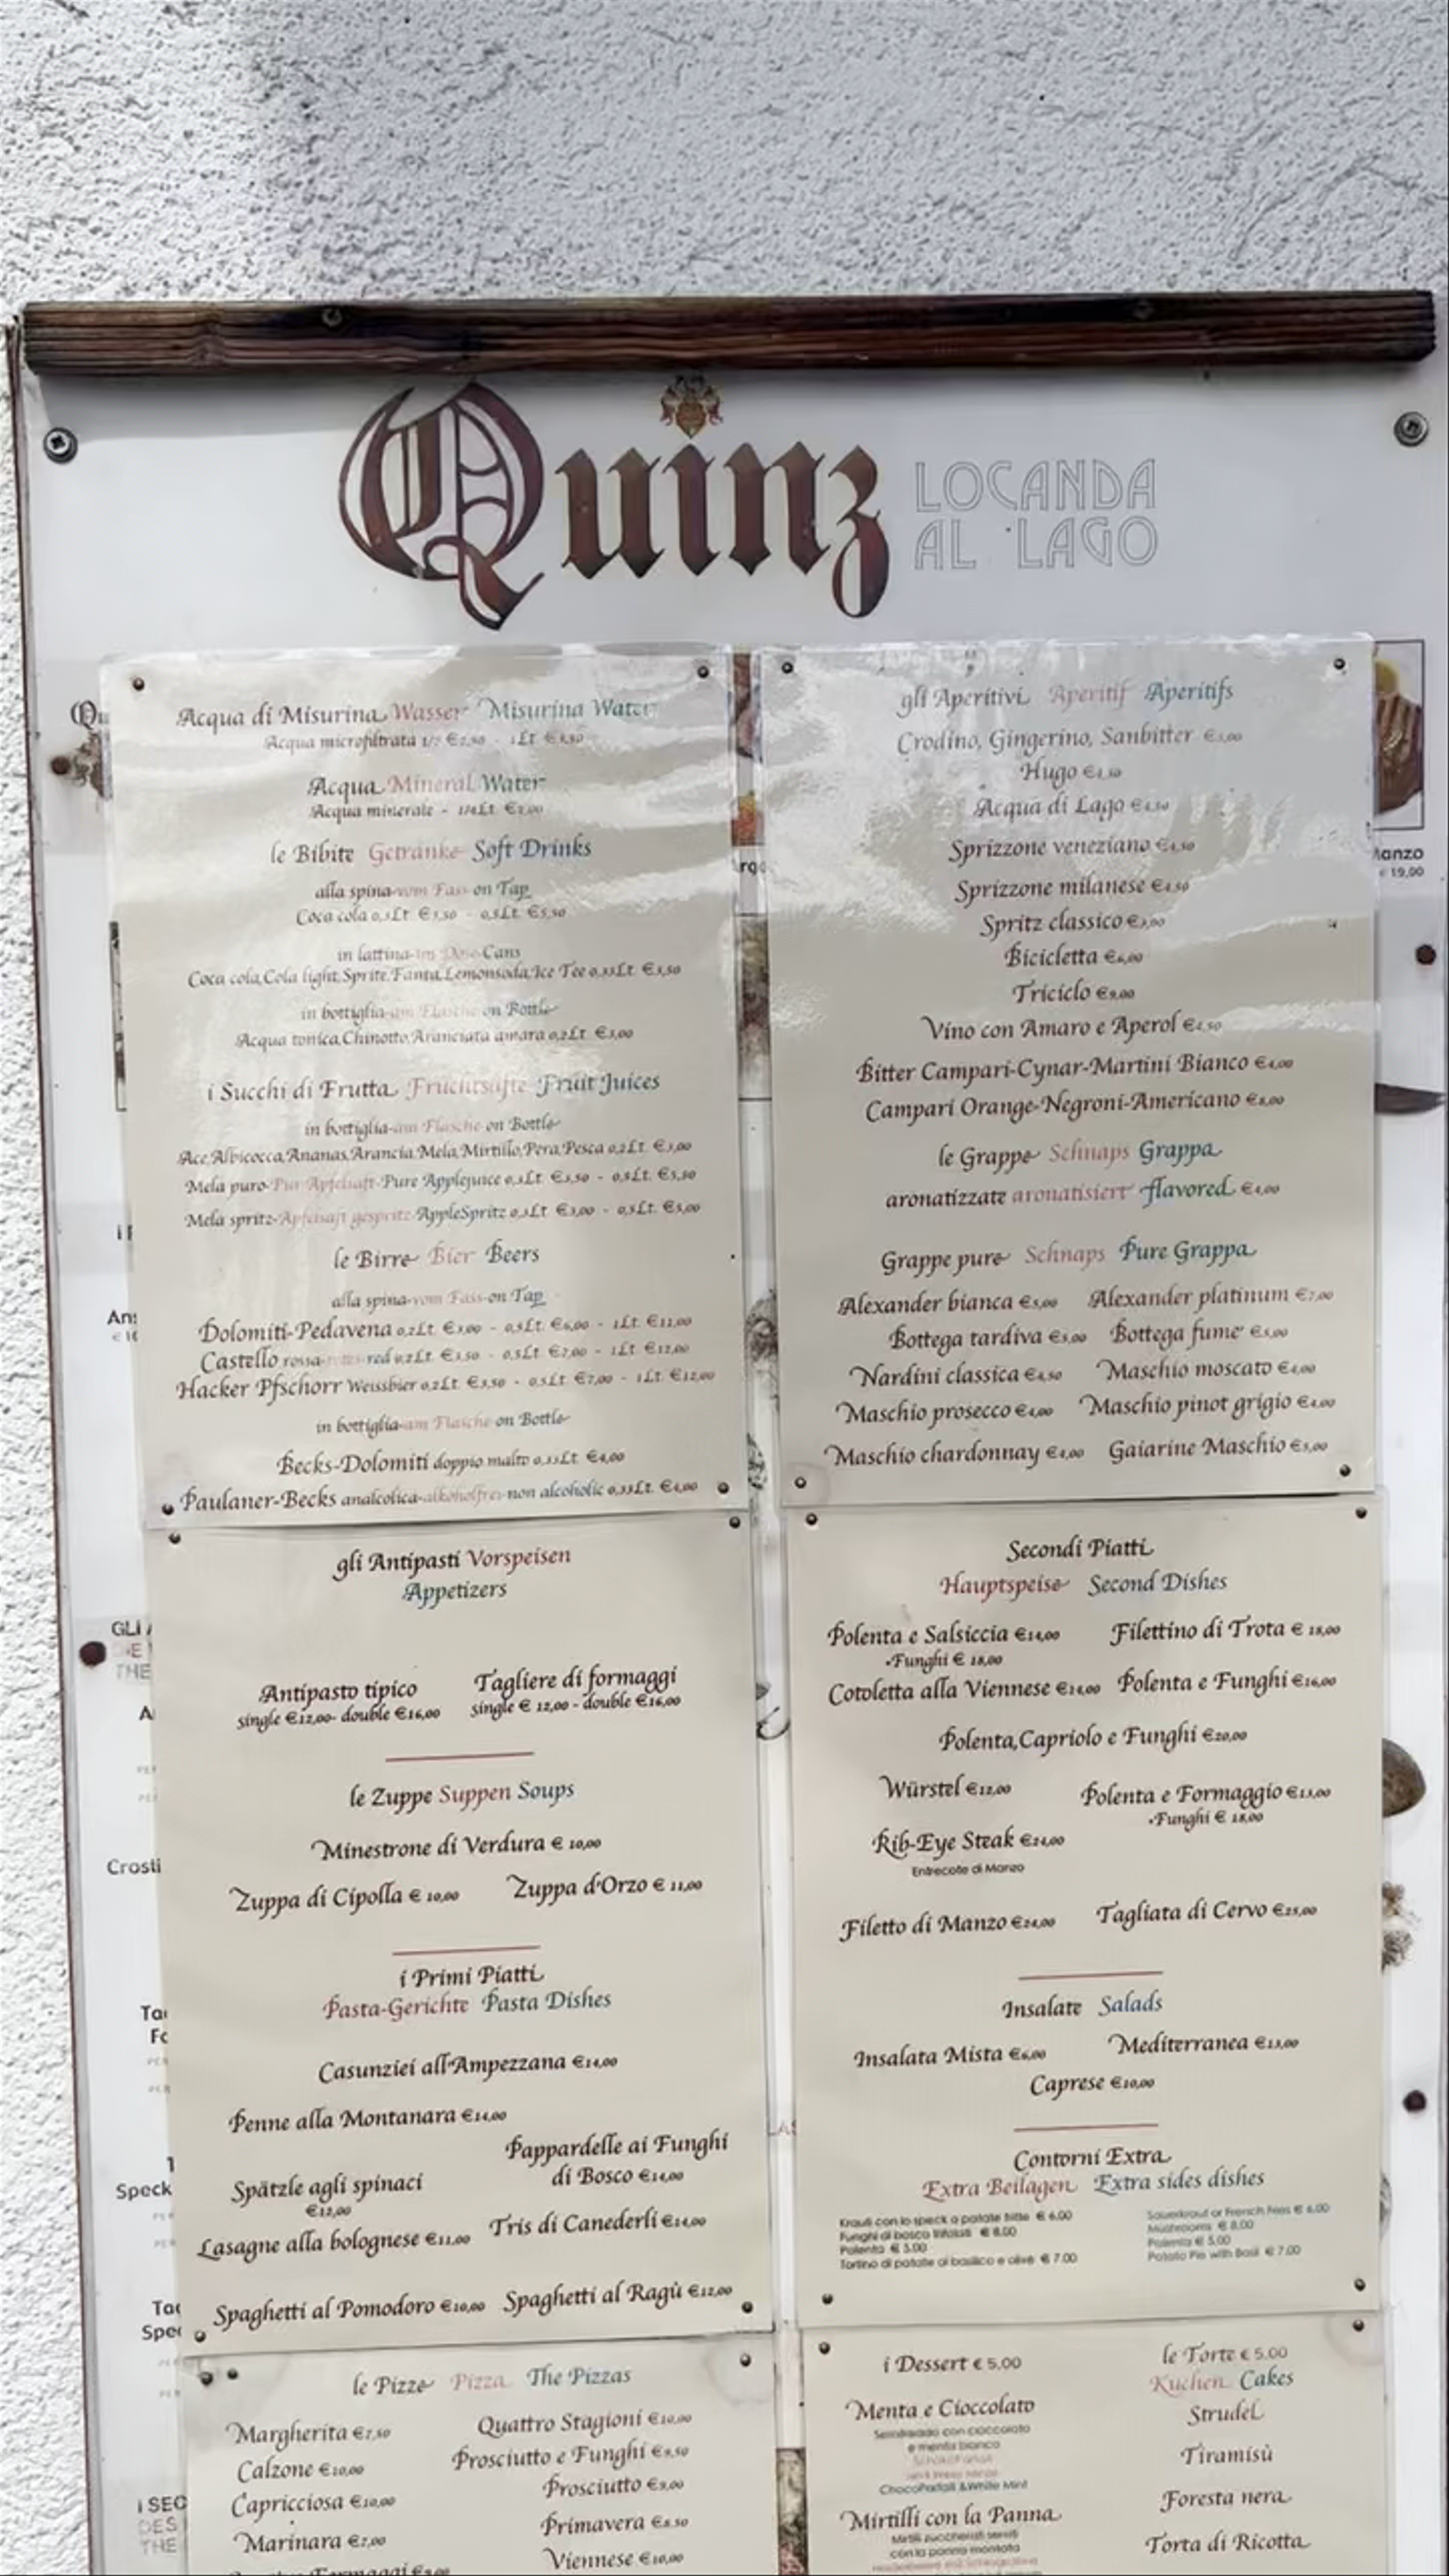 Quinz LOCANDA
AL LAGO
Acqua di Misurina Wasser Misurina Water
Acqua microfiltrata 1/2 €2,50 - 1Lt €3,50
Acqua Mineral Water
Acqua minerale - 1/4Lt. €2,00
le Bibite Getränke Soft Drinks
alla spina-vom Fass-on Tap
Coca cola 0,3Lt €3,50 - 0,5Lt. €5,50
in lattina-im Dose-Cans
Coca cola,Cola light,Sprite,Fanta,Lemonsoda,Ice Tee 0,33Lt. €3,50
in bottiglia-am Flasche-on Bottle
Acqua tonica,Chinotto,Aranciata amara 0,2Lt. €3,00
i Succhi di Frutta Fruchtsäfte Fruit Juices
in bottiglia-am Flasche-on Bottle
Ace,Albicocca,Ananas,Arancia,Mela,Mirtillo,Pera,Pesca 0,2Lt. €3,00
Mela puro-Pur Apfelsaft-Pure Applejuice 0,3Lt €3,50 - 0,5Lt. €5,50
Mela spritz-Apfelsaft gespritz-AppleSpritz 0,3Lt €3,00 - 0,5Lt. €5,00
le Birre Bier Beers
alla spina-vom Fass-on Tap
Dolomiti-Pedavena 0,2Lt. €3,00 - 0,5Lt. €6,00 - 1Lt. €11,00
Castello rossa-rotes-red 0,2Lt. €3,50 - 0,5Lt. €7,00 - 1Lt. €12,00
Hacker Pfschorr Weissbier 0,2Lt. €3,50 - 0,5Lt. €7,00 - 1Lt. €12,00
in bottiglia-am Flasche-on Bottle
Becks-Dolomiti doppio malto 0,33Lt. €4,00
Paulaner-Becks analcolica-alkoholfrei-non alcoholic 0,33Lt. €4,00
gli Aperitivi Aperitif Aperitifs
Crodino, Gingerino, Sanbitter €3,00
Hugo €4,50
Acqua di Lago €4,50
Sprizzone veneziano €4,50
Sprizzone milanese €4,50
Spritz classico €3,00
Bicicletta €6,00
Triciclo €9,00
Vino con Amaro e Aperol €4,50
Bitter Campari-Cynar-Martini Bianco €4,00
Campari Orange-Negroni-Americano €8,00
le Grappe Schnaps Grappa
aronatizzate aronatisiert flavored €4,00
Grappe pure Schnaps Pure Grappa
Alexander bianca €5,00 Alexander platinum €7,00
Bottega tardiva €5,00 Bottega fume' €5,00
Nardini classica €4,50 Maschio moscato €4,00
Maschio prosecco €4,00 Maschio pinot grigio €4,00
Maschio chardonnay €4,00 Gaiarine Maschio €5,00
gli Antipasti Vorspeisen
Appetizers
Antipasto tipico Tagliere di formaggi
single €12,00- double €16,00 single € 12,00 - double €16,00
le Zuppe Suppen Soups
Minestrone di Verdura € 10,00
Zuppa di Cipolla € 10,00 Zuppa d'Orzo € 11,00
i Primi Piatti
Pasta-Gerichte Pasta Dishes
Casunziei all'Ampezzana €14,00
Penne alla Montanara €14,00
Pappardelle ai Funghi
di Bosco €14,00
Spätzle agli spinaci
€12,00
Tris di Canederli €14,00
Lasagne alla bolognese €11,00
Spaghetti al Pomodoro €10,00 Spaghetti al Ragù €12,00
Secondi Piatti
Hauptspeise Second Dishes
Polenta e Salsiccia €14,00 Filettino di Trota € 18,00
+Funghi € 18,00
Cotoletta alla Viennese €14,00 Polenta e Funghi €16,00
Polenta,Capriolo e Funghi €20,00
Würstel €12,00 Polenta e Formaggio €13,00
+Funghi € 18,00
Rib-Eye Steak €24,00
Entrecote di Manzo
Filetto di Manzo €24,00 Tagliata di Cervo €25,00
Insalate Salads
Insalata Mista €6,00 Mediterranea €13,00
Caprese €10,00
Contorni Extra
Extra Beilagen Extra sides dishes
Krauti con lo speck o patate fritte € 6.00
Funghi di bosco trifolati € 8.00
Polenta € 5.00
Tortino di patate al basilico e olive € 7.00
Sauerkraut or French Fries € 6.00
Mushrooms € 8.00
Polenta € 5.00
Potato Pie with Basil € 7.00
le Pizze Pizza The Pizzas
Margherita €7,50 Quattro Stagioni €10,00
Calzone €10,00 Prosciutto e Funghi €9,50
Capricciosa €10,00 Prosciutto €9,00
Marinara €7,00 Primavera €8,50
Viennese €10,00
i Dessert € 5.00
Menta e Cioccolato
Semifreddo con cioccolato
e menta bianca
ChocoParfait &White Mint
Mirtilli con la Panna
Mirtilli zuccherati serviti
con la panna montata
le Torte € 5.00
Kuchen Cakes
Strudel
Tiramisù
Foresta nera
Torta di Ricotta
Manzo
€ 19,00
GLI
THE
Crosti
Speck
i SEC
DES
THE